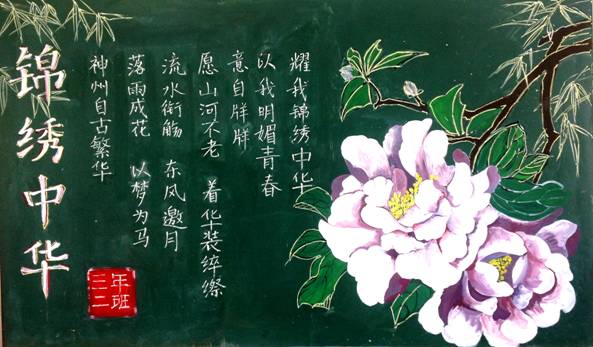 锦绣中华
神州自古繁华
落雨成花 以梦为马
流水衔觞 东风邀月
愿山河不老 着华装綷縩
意自牂牂
以我明媚青春
耀我锦绣中华
三年
二班